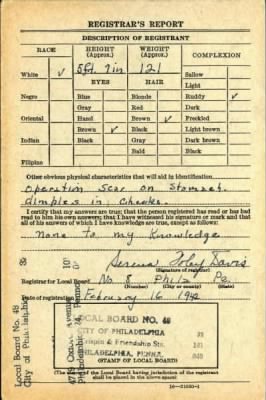 REGISTRAR'S REPORT
DESCRIPTION OF REGISTRANT
RACE HEIGHT (Approx.) WEIGHT (Approx.) COMPLEXION
White ✓ 5ft. 7in 121 Sallow
EYES HAIR Light
Negro Blue Blonde Ruddy ✓
Gray Red Dark
Oriental Hazel Brown ✓ Freckled
Brown ✓ Black Light brown
Indian Black Gray Dark brown
Bald Black
Filipino
Other obvious physical characteristics that will aid in identification
Operation Scar on Stomach.
dimples in Cheeks.
I certify that my answers are true; that the person registered has read or has had
read to him his own answers; that I have witnessed his signature or mark and that
all of his answers of which I have knowledge are true, except as follows:
None to my Knowledge
Davis
(Signature of registrar)
Registrar for Local Board No. 8 Phila Pa.
(Number) (City or county) (State)
Date of registration February 16 1942
LOCAL BOARD No. 48
CITY OF PHILADELPHIA
& Friendship Sta.
PHILADELPHIA, PENNA.
(STAMP OF LOCAL BOARD)
(The stamp of the Local Board having jurisdiction of the registrant
shall be placed in the above space)
Local Board No. 48
City of Philadelphia